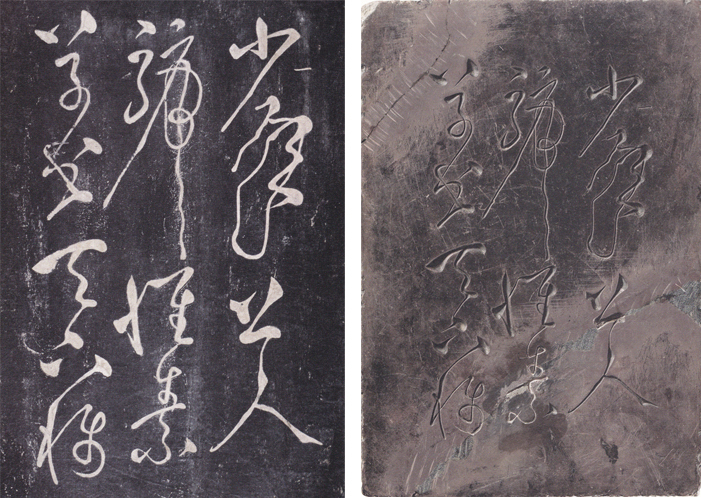 少年上人
號懷素
草書天下稱
少年上人
號懷素
草書天下稱